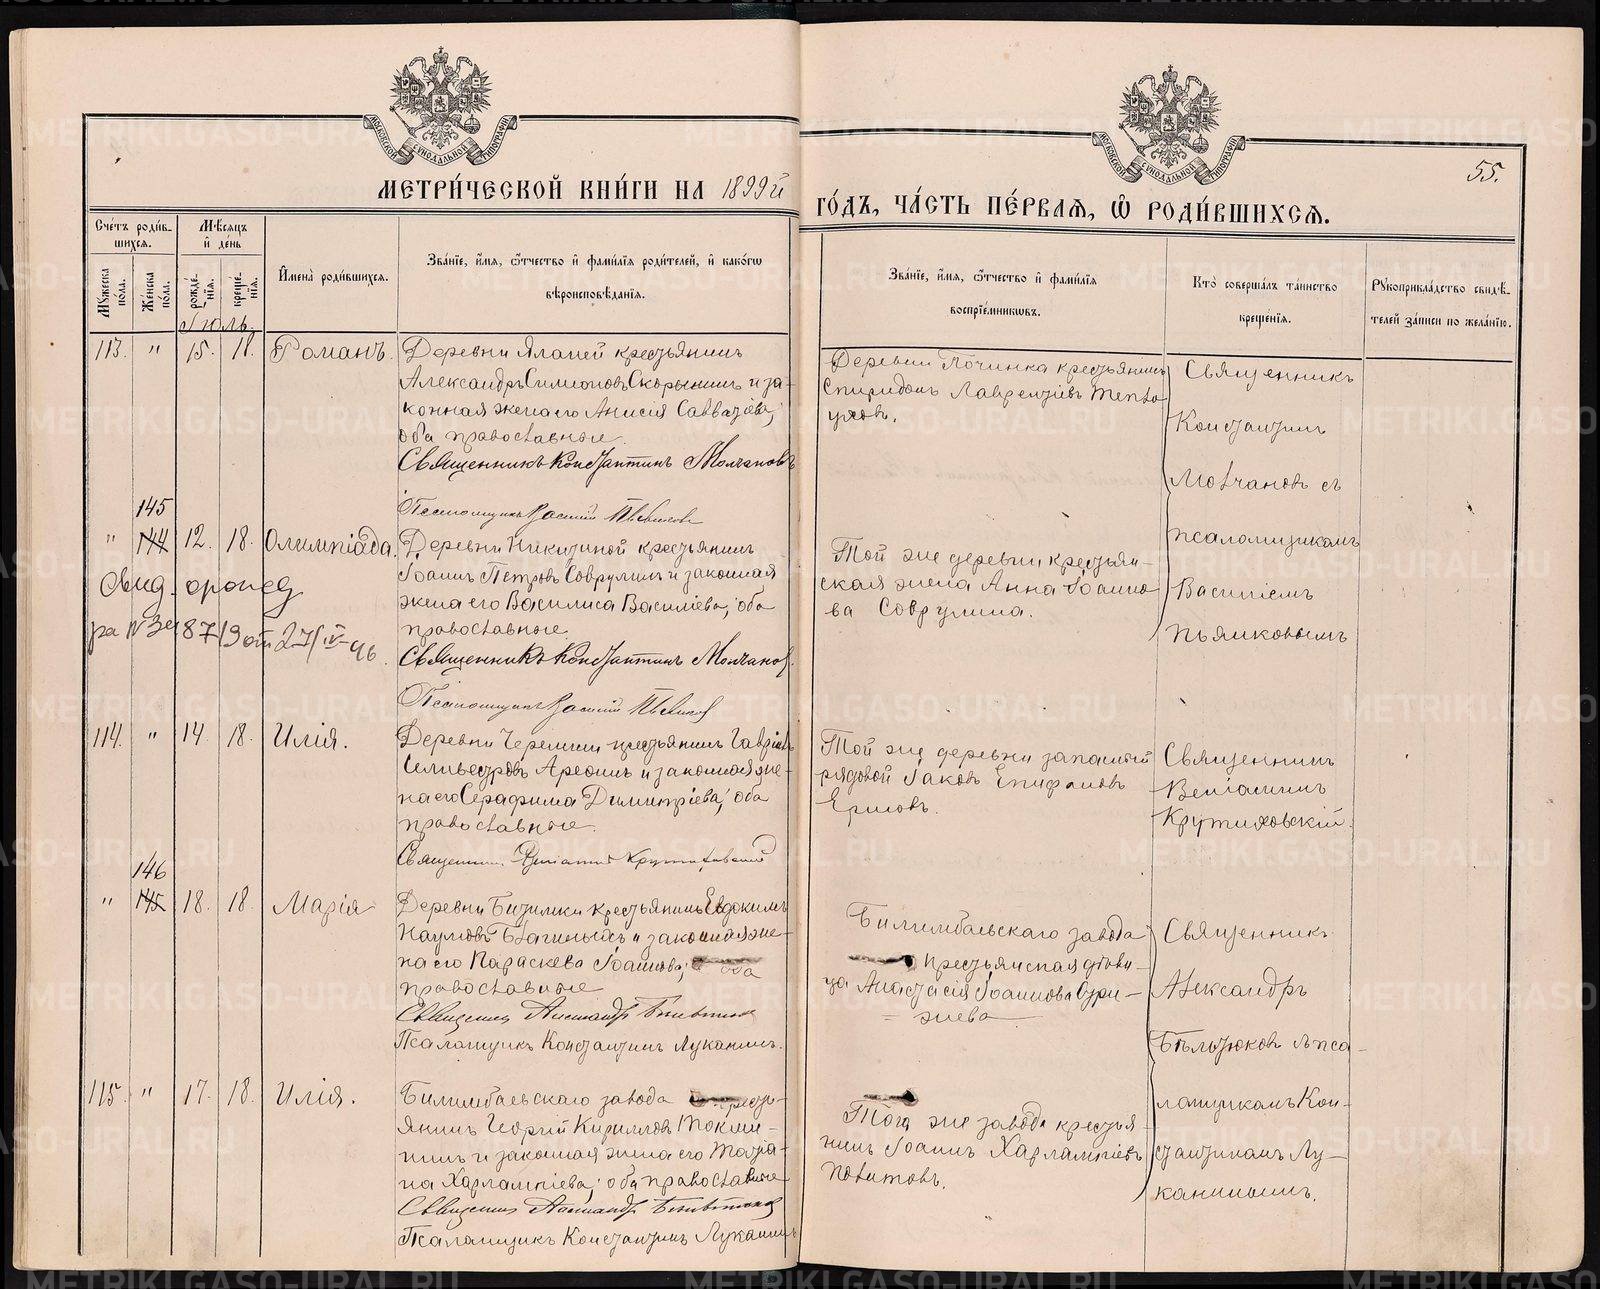 МЕТРИ́ЧЕСКОЙ КНИ́ГИ НА 1899й
ГО́ДЪ, ЧА́СТЬ ПЕ́РВАЯ, Ѡ РОДИ́ВШИХСЯ.
55.
Сче́тъ роди́в-
шихся.
Мѣ́сяцъ
и҆ де́нь
Мꙋ́жеска по́ла.
Же́нска по́ла.
рожде́-
нїя.
креще́-
нїя.
И҆мена̀ роди́вшихся.
Зва́нїе, и҆́мя, ѻ҆́тчество и҆ фами́лїя роди́телей, и҆ како́гѡ
вѣроисповѣ́данїя.
Зва́нїе, и҆́мя, ѻ҆́тчество и҆ фами́лїя
воспрїе́мникѡвъ.
Кто̀ соверша́лъ та́инство
креще́нїя.
Рꙋкоприкла́дство свидѣ́-
телей за́писи по жела́нїю.
Іюль.
113. " 15. 18. Романъ.
Деревни Яланей крестьянинъ
Александръ Симионовъ Скорынинъ и за-
конная жена его Анисія Савватіева,
оба православные.
Священникъ Константинъ Молчановъ
Псаломщикъ Василій
Деревни Починка крестьянинъ
Спиридонъ Лаврентіевъ
Священникъ
Константинъ
Молчановъ съ
псаломщикомъ
Василіемъ
Пьянковымъ
145
" 144 12. 18. Олимпіада.
Свид. о рожд
27/IV-46
Деревни Никитиной крестьянинъ
Іоаннъ Петровъ Соврулинъ и законная
жена его Василиса Василіева, оба
православные.
Священникъ Константинъ Молчановъ.
Псаломщикъ Василій
Той же деревни крестьян-
ская жена Анна Іоанно-
ва Соврулина.
114. " 14. 18. Илія.
Деревни Черемши крестьянинъ Гавріилъ
Сильвестровъ Арефинъ и законная же-
на его Серафима Димитріева, оба
православные.
Священникъ Веніаминъ Крутиховскій
Той же деревни запасной
рядовой Іаковъ Епифановъ
Священникъ
Веніаминъ
Крутиховскій.
146
" 145 18. 18. Марія
Деревни Битимки крестьянинъ Евдокимъ
Наумовъ и законная же-
на его Параскева Іоаннова, оба
православные
Священникъ Александръ
Псаломщикъ Константинъ Луканинъ.
Билимбаевскаго завода
крестьянская дѣви-
ца Анастасія Іоаннова
Священникъ
Александръ
Бѣлтюковъ съ пса-
ломщикомъ Кон-
стантиномъ Лу-
канинымъ.
115. " 17. 18. Илія.
Билимбаевскаго завода кресть-
янинъ Георгій Кирилловъ
и законная жена его Татіа-
на Харлампіева, оба православные
Священникъ Александръ
Псаломщикъ Константинъ Луканинъ
Того же завода крестья-
нинъ Іоаннъ Харлампіевъ